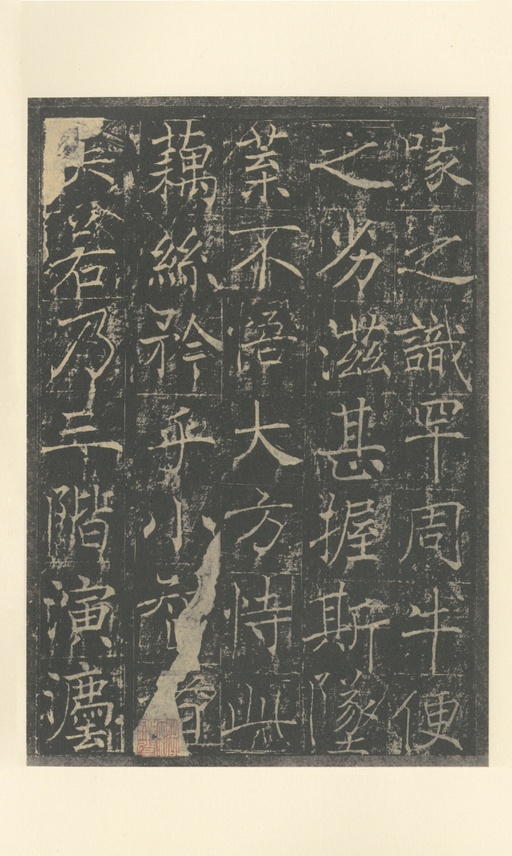 喙之識罕周牛便
之劣滋甚握斯墜
葉不悟大方恃此
藕絲矜乎小智
矣若乃三階演灋